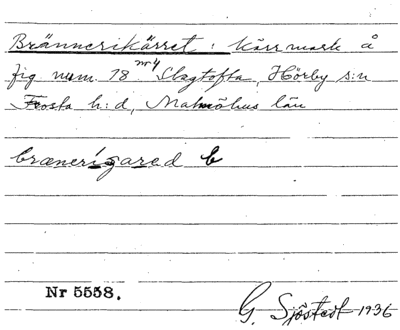 Brännerikärret: kärrmark å
fig num. 18 nr 4 Slagtofta, Hörby s:n
Frosta h:d, Malmöhus län
brænerigared
Nr 5558.
G. Sjöstedt 1936